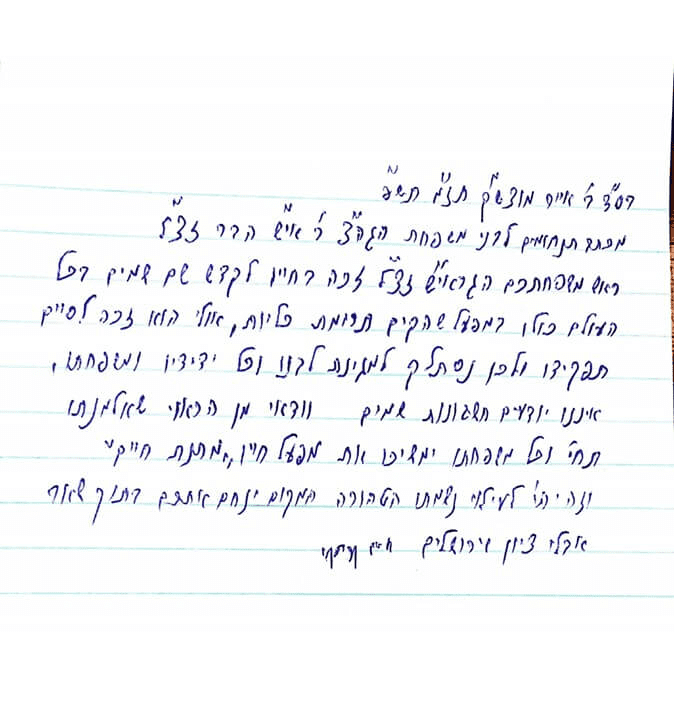 בס״ד ו׳ אייר מוצש״ק תזו״מ תש״פ
מכתב תנחומים לבני משפחת הגה״צ ר׳ אי״ש הבר זצ״ל
ראש משפחתכם הגראי״ש זצ״ל זכה בחייו לקדש שם שמים בכל
העולם כולו במפעל שהקים תרומת כליות, אולי הוא זכה לסיים
תפקידו ולכן נסתלק למגינת לבנו וכל ידידיו ומשפחתו,
איננו יודעים חשבונות שמים וודאי מן הראוי שאלמנתו
תחי׳ וכל משפחתו ימשיכו את מפעל חייו, ״מתנת חיים״
וזה יהי׳ לעילוי נשמתו הטהורה המקום ינחם אתכם בתוך שאר
אבלי ציון וירושלים חיים קניבסקי